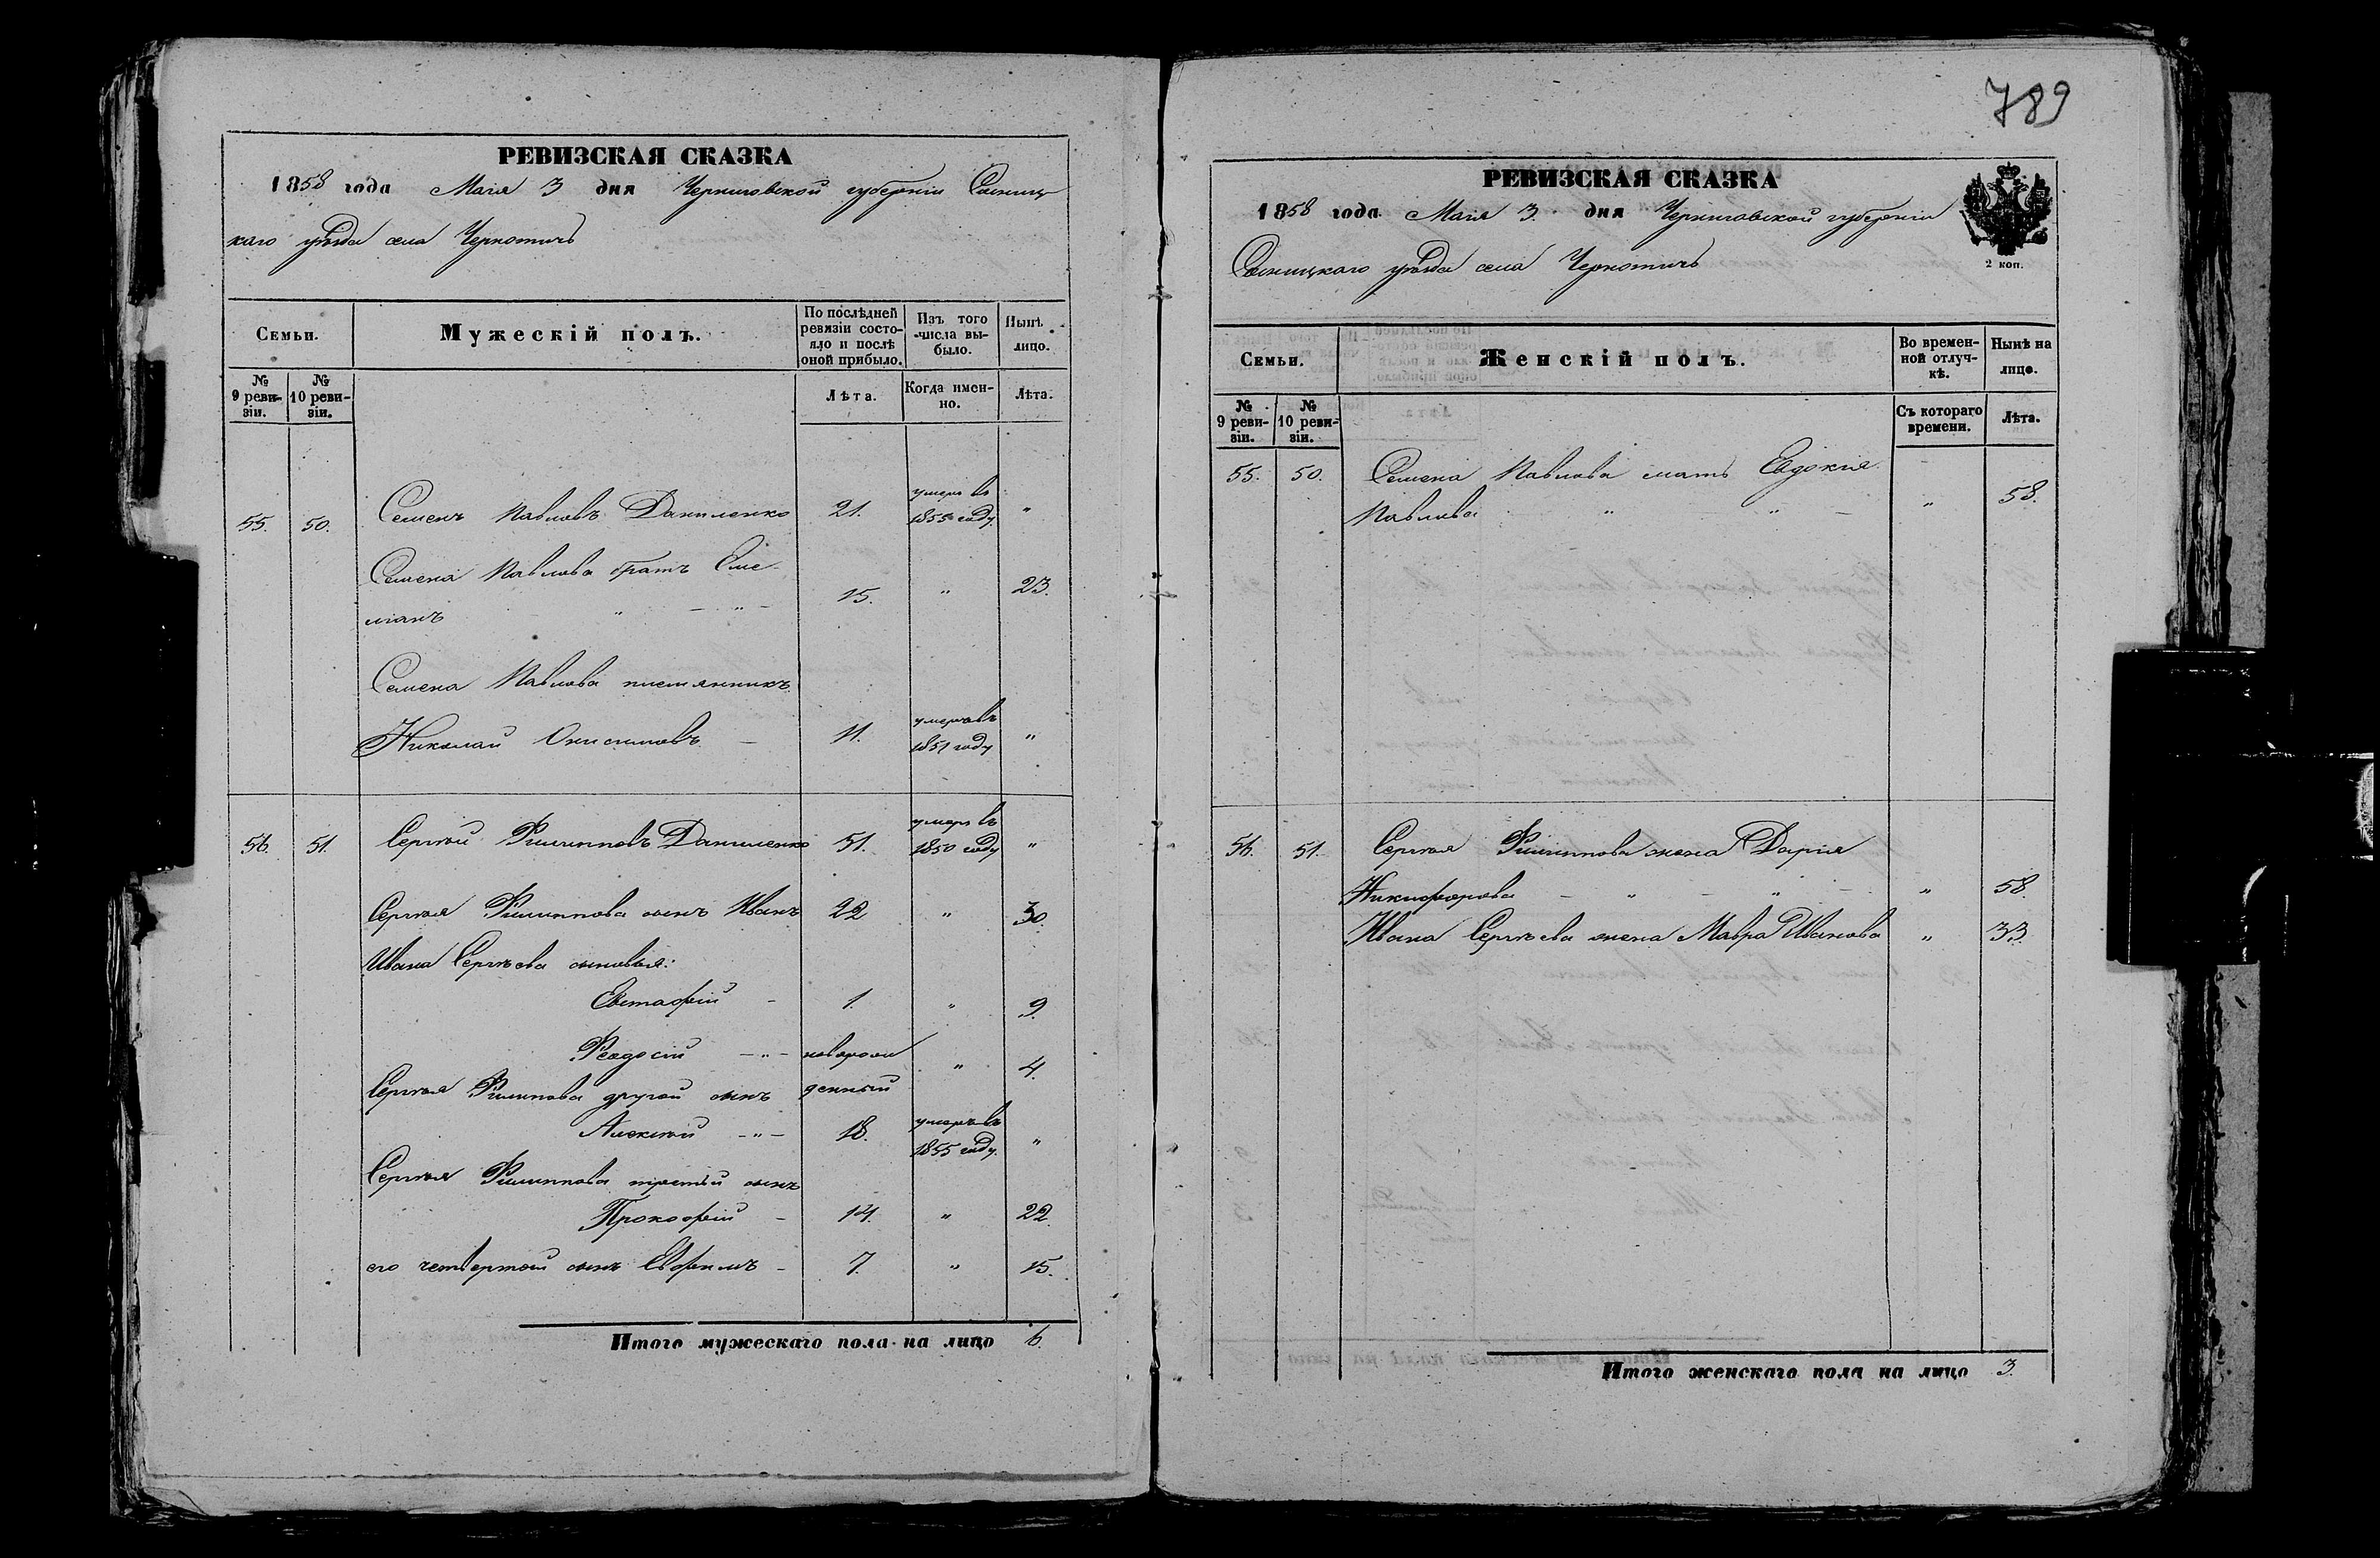 789
РЕВИЗСКАЯ СКАЗКА
1858 года Маія 3 дня Черниговской губерніи Сосниц
каго уѣзда села Чернотичъ
Семьи.
Мужескій полъ.
По послѣдней ревизіи состояло и послѣ оной прибыло.
Изъ того числа выбыло.
Нынѣ лицо.
№ 9 ревизіи.
№ 10 ревизіи.
Лѣта.
Когда именно.
Лѣта.
55. 50. Семенъ Павловъ Даниленко 21. умеръ въ 1855 году "
Семена Павлова братъ Еме-
лианъ " — " — 15. " 23.
Семена Павлова племянникъ
Николай Онисимовъ — 11. умеръ въ 1851 году "
56. 51. Сергѣй Филипповъ Даниленко 51. умеръ въ 1850 году "
Сергѣя Филиппова сынъ Иванъ 22 " 30.
Ивана Сергѣева сыновья:
Евстафій - 1. " 9.
Феодосій — " — новорожденный " 4.
Сергѣя Филиппова другой сынъ
Алексѣй — " — 18. умеръ въ 1855 году "
Сергѣя Филиппова третьй сынъ
Прокофій - 14. " 22.
его четвертой сынъ Евфимъ - 7. " 15.
Итого мужескаго пола на лицо 6.
РЕВИЗСКАЯ СКАЗКА
1858 года Маія 3. дня Черниговской губерніи
Сосницкаго уѣзда села Чернотичъ
2 коп.
Семьи.
Женскій полъ.
Во временной отлучкѣ.
Нынѣ на лицо.
№ 9 ревизіи.
№ 10 ревизіи.
Съ котораго времени.
Лѣта.
55. 50. Семена Павлова мать Евдокія
Павлова " " — " 58.
56. 51. Сергѣя Филиппова жена Дарія
Никифорова — " — " — " 58.
Ивана Сергѣева жена Мавра Иванова " 33.
Итого женскаго пола на лицо 3.